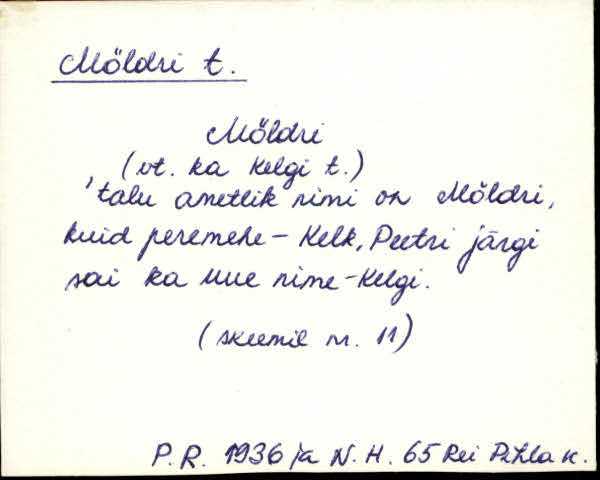 Mõldri t.
Mõldri
(vt. ka Kelgi t.)
'talu ametlik nimi on Mõldri,
kuid peremehe - Kelk, Peetri järgi
sai ka uue nime - Kelgi.
(skeemil nr. 11)
P.R. 1936 ja N.H. 65 Rei Pihla k.